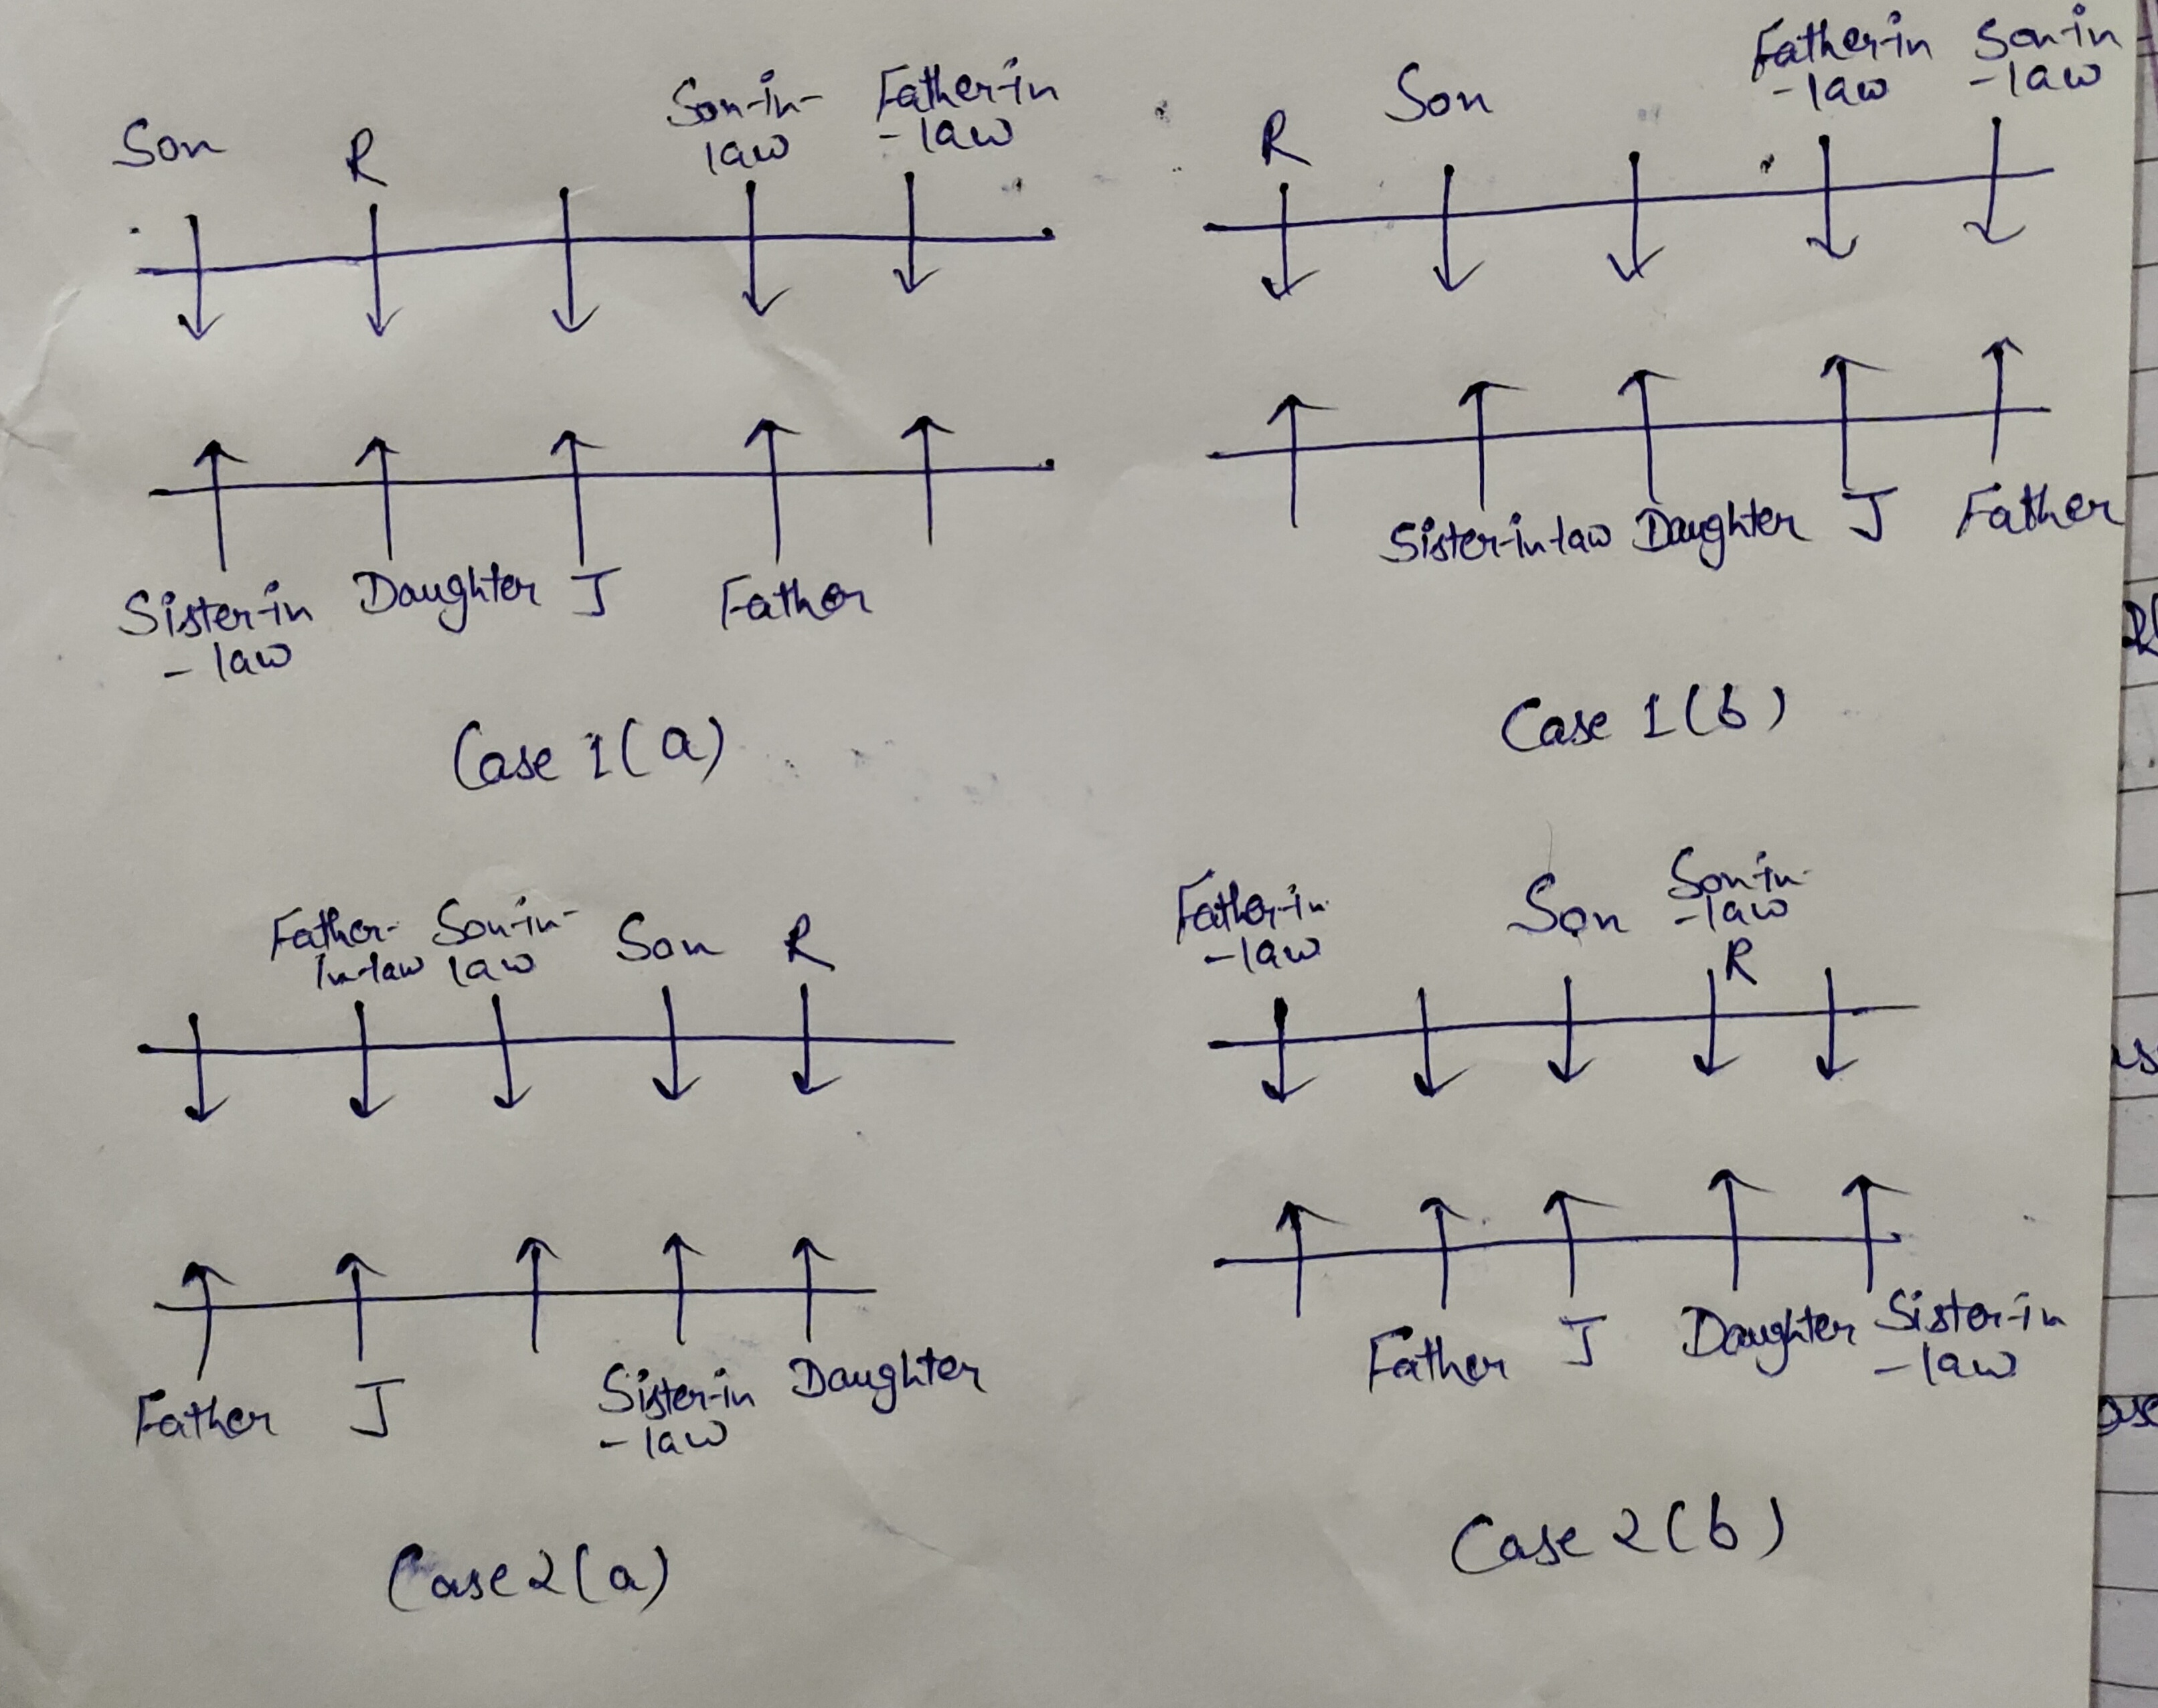 Son R Son-in-
law Father-in
-law
Sister-in
-law Daughter J Father
Case 1(a)
R Son Father-in
-law Son-in
-law
Sister-in-law Daughter J Father
Case 1(b)
Father-
In-law Son-in-
law Son R
Father J Sister-in
-law Daughter
Case 2(a)
Father-in
-law Son Son-in-
-law
R
Father J Daughter Sister-in
-law
Case 2(b)